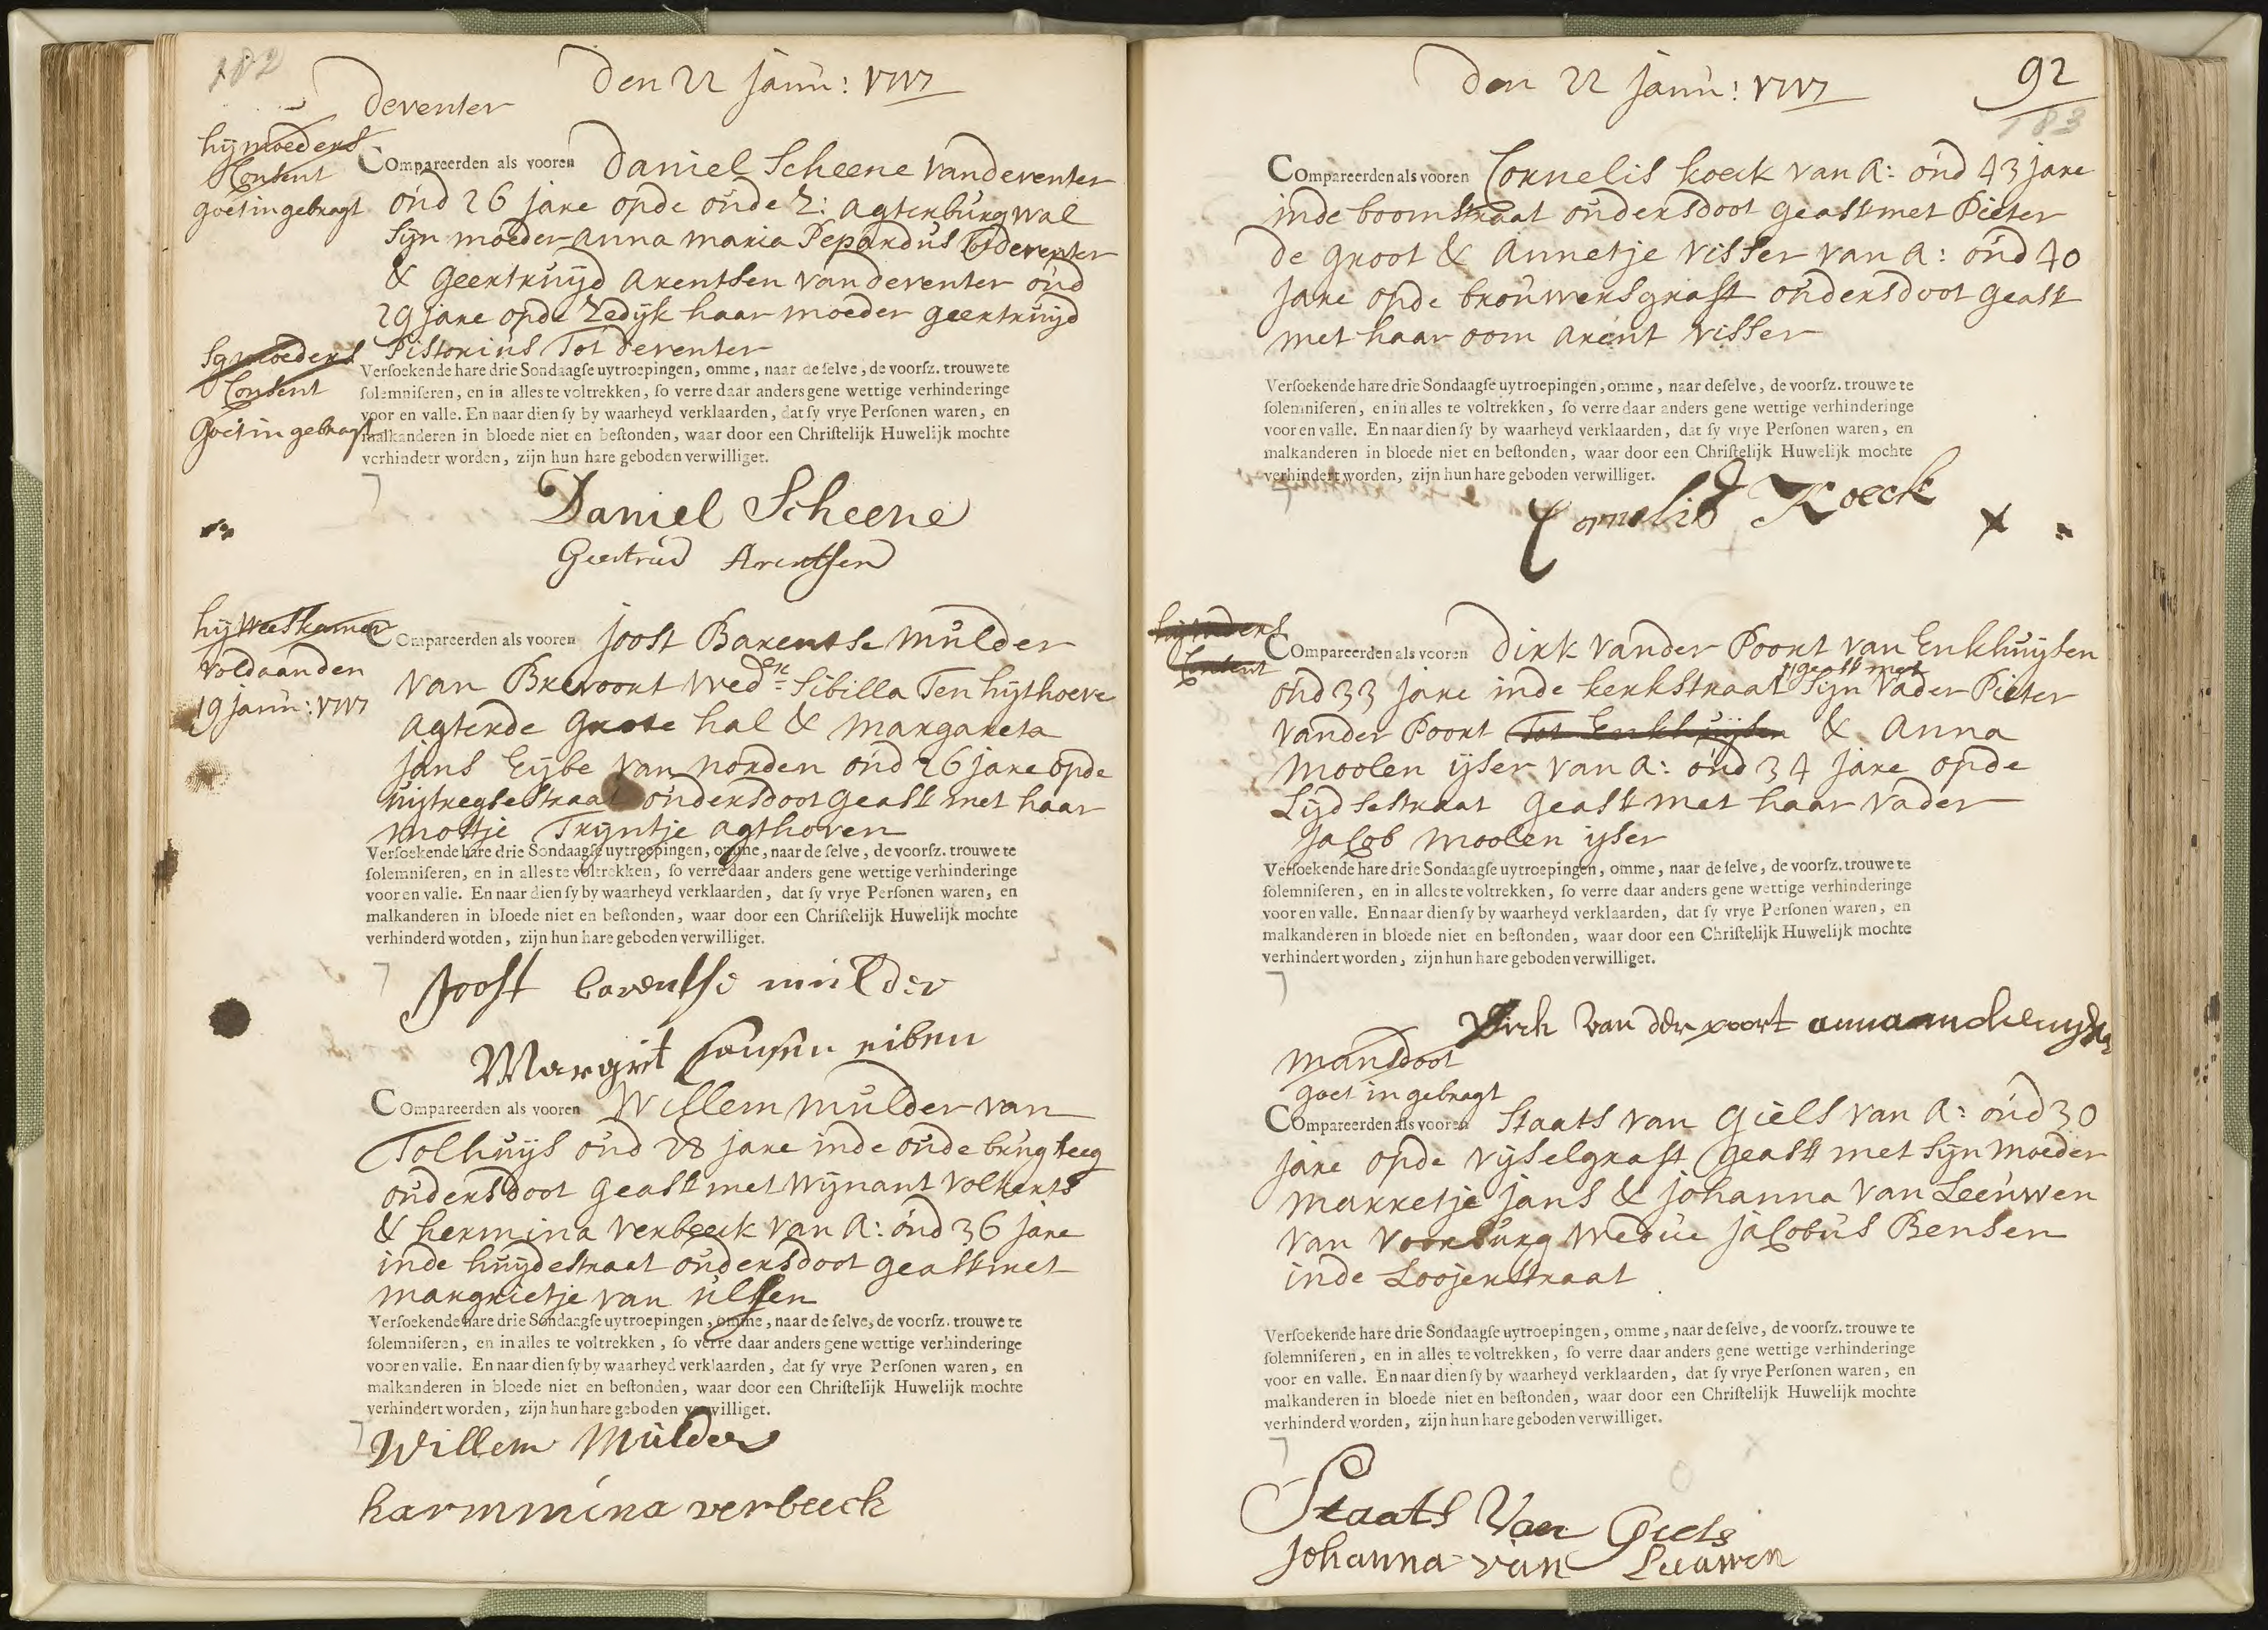 182
Den 22 Janu: 1717
Deventer
hij moeders
Consent
goet in gebragt
Compareerden als vooren Daniel Scheene van deventer
oud 26 jare opde oude Z: agterburgwal
Sijn moeder anna maria Pepardus Tot deventer
& geertruijd arentsen van deventer oud
29 jare opde Zedijk haar moeder geertruijd
Pistorius Tot deventer
Sy moeders
Consent
goet in gebragt
Versoekende hare drie Sondaagse uytroepingen, omme, naar de selve, de voorsz. trouwe te
solemniseren, en in alles te voltrekken, so verre daar anders gene wettige verhinderinge
voor en valle. En naar dien sy by waarheyd verklaarden, dat sy vrye Personen waren, en
malkanderen in bloede niet en bestonden, waar door een Christelijk Huwelijk mochte
verhindert worden, zijn hun hare geboden verwilliget.
Daniel Scheene
Geertrud Arentsen
hij Weeskamer
voldaan den
19 janu: 1717
Compareerden als vooren Joost Barentse Mulder
van Brevoort Wedr Sibilla Ten hijthoeve
agter de Grote hal & margareta
jans Eijbe van norden oud 26 jare opde
uijtregtse straat ouders doot geast met haar
mottje Trijntje agthoven
Versoekende hare drie Sondaagse uytroepingen, omme, naar de selve, de voorsz. trouwe te
solemniseren, en in alles te voltrekken, so verre daar anders gene wettige verhinderinge
voor en valle. En naar dien sy by waarheyd verklaarden, dat sy vrye Personen waren, en
malkanderen in bloede niet en bestonden, waar door een Christelijk Huwelijk mochte
verhinderd worden, zijn hun hare geboden verwilliget.
Joost barentse mulder
Margrit Jansen eiben
Compareerden als vooren Willem mulder van
Tolhuijs oud 28 jare inde oude brug steeg
ouders doot geast met Wijnant Volkerts
& hermina verbeeck van A: oud 36 jare
inde huijdestraat ouders doot geast met
margrietje van ulsen
Versoekende hare drie Sondaagse uytroepingen, omme, naar de selve, de voorsz. trouwe te
solemniseren, en in alles te voltrekken, so verre daar anders gene wettige verhinderinge
voor en valle. En naar dien sy by waarheyd verklaarden, dat sy vrye Personen waren, en
malkanderen in bloede niet en bestonden, waar door een Christelijk Huwelijk mochte
verhindert worden, zijn hun hare geboden verwilliget.
Willem Mulder
harmmina verbeeck
Den 22 Janu: 1717
92
183
Compareerden als vooren Cornelis koeck van A: oud 43 jare
inde boomstraat ouders doot geast met Pieter
de groot & Annetje visser van A: oud 40
jare opde brouwersgraft ouders doot geast
met haar oom arent visser
Versoekende hare drie Sondaagse uytroepingen, omme, naar deselve, de voorsz. trouwe te
solemniseren, en in alles te voltrekken, so verre daar anders gene wettige verhinderinge
voor en valle. En naar dien sy by waarheyd verklaarden, dat sy vrye Personen waren, en
malkanderen in bloede niet en bestonden, waar door een Christelijk Huwelijk mochte
verhindert worden, zijn hun hare geboden verwilliget.
Cornelis Koeck X
hij vaders
Consent
Compareerden als vooren Dirk vander Poort van Enkhuijsen
geast met
oud 33 jare inde kerkstraat Sijn vader Pieter
vander Poort Tot Enkhuijsen & Anna
Moolen ijser van A: oud 34 jare opde
Lijdsestraat geast met haar vader
Jacob Moolen ijser
Versoekende hare drie Sondaagse uytroepingen, omme, naar de selve, de voorsz. trouwe te
solemniseren, en in alles te voltrekken, so verre daar anders gene wettige verhinderinge
voor en valle. En naar dien sy by waarheyd verklaarden, dat sy vrye Personen waren, en
malkanderen in bloede niet en bestonden, waar door een Christelijk Huwelijk mochte
verhindert worden, zijn hun hare geboden verwilliget.
Dirck van der poort anna
mans doot
goet in gebragt
Compareerden als vooren Staats van Giels van A: oud 30
jare opde vijselgraft geast met Sijn moeder
Marretje jans & johanna van Leeuwen
van Voorburg wedue jacobus Bensen
inde Loojerstraat
Versoekende hare drie Sondaagse uytroepingen, omme, naar de selve, de voorsz. trouwe te
solemniseren, en in alles te voltrekken, so verre daar anders gene wettige verhinderinge
voor en valle. En naar dien sy by waarheyd verklaarden, dat sy vrye Personen waren, en
malkanderen in bloede niet en bestonden, waar door een Christelijk Huwelijk mochte
verhinderd worden, zijn hun hare geboden verwilliget.
Staats Van Giels
Johanna van Leeuwen